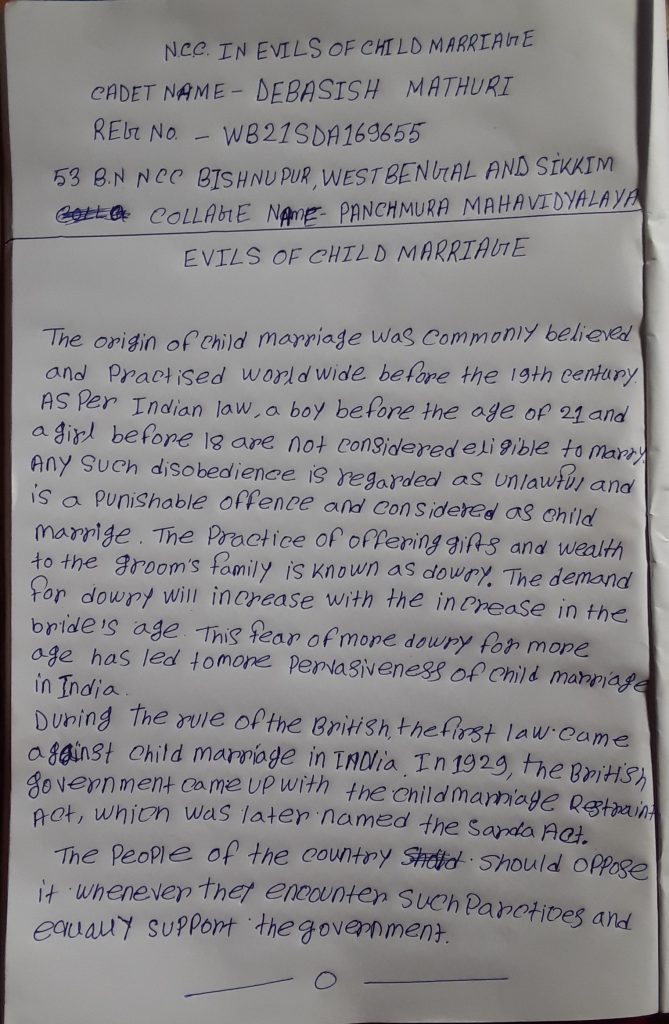 NCC. IN EVILS OF CHILD MARRIAGE
CADET NAME - DEBASISH MATHURI
REGt No. - WB21SDA169655
53 B.N NCC BISHNUPUR, WEST BENGAL AND SIKKIM
COLLAGE NAME - PANCHMURA MAHAVIDYALAYA
EVILS OF CHILD MARRIAGE
The origin of child marriage was commonly believed
and Practised world wide before the 19th century.
AS Per Indian law, a boy before the age of 21 and
a girl before 18 are not considered eligible to marry.
Any such disobedience is regarded as unlawful and
is a punishable offence and considered as child
marrige. The Practice of offering gifts and wealth
to the groom's family is known as dowry. The demand
for dowry will increase with the increase in the
bride's age. This fear of more dowry for more
age has led to more pervasiveness of child marriage
in India.
During the rule of the British, the first law came
against child marriage in INDia. In 1929, the British
government came up with the child marriage Restraint
Act, which was later named the Sarda Act.
The People of the country should oppose
it whenever they encounter such Parctices and
equally support the government.